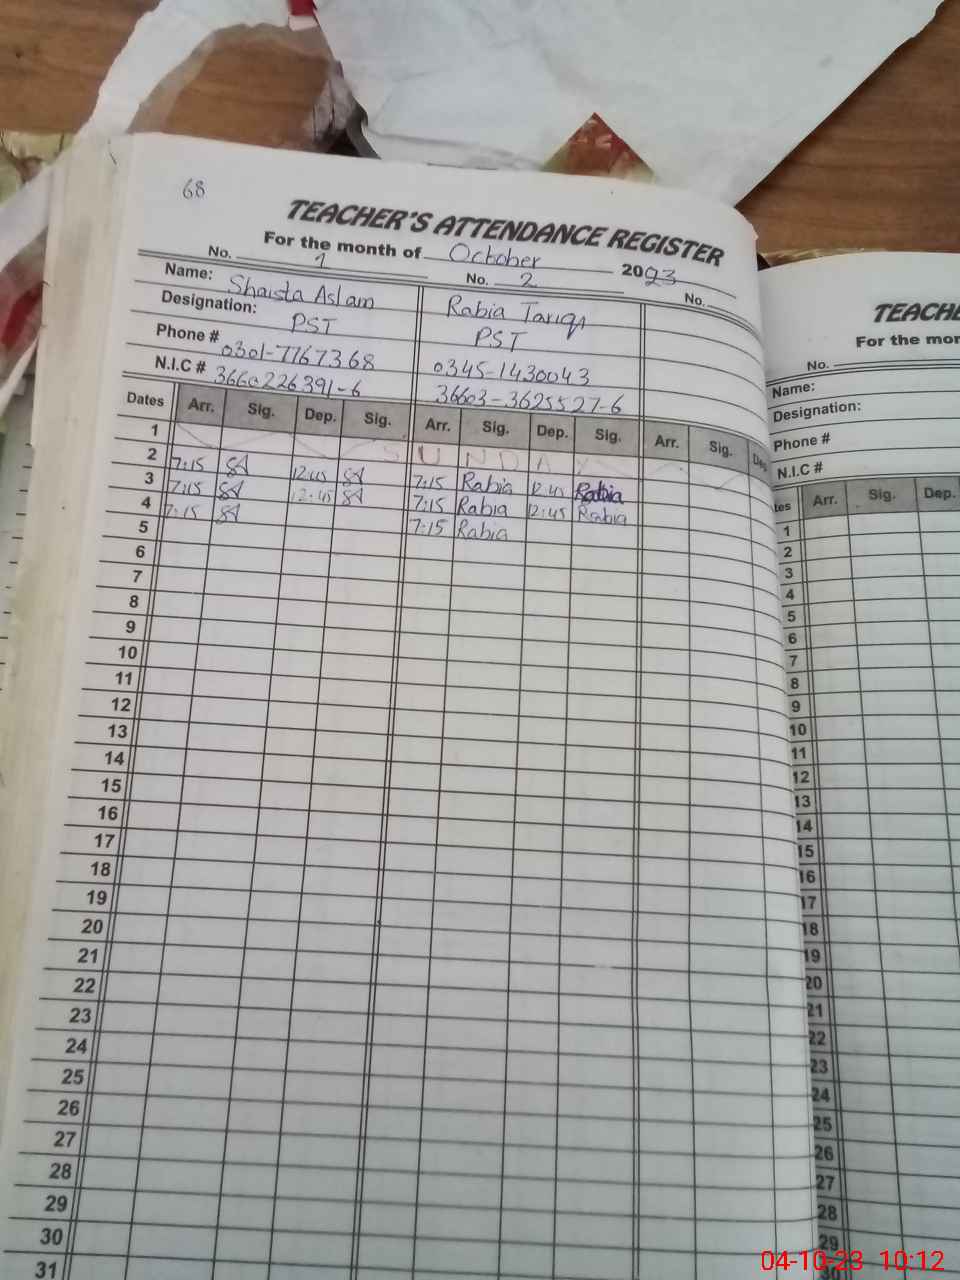 68
TEACHER'S ATTENDANCE REGISTER
For the month of October 2023
No. 1 No. 2 No.
Name: Shaista Aslam Rabia Tariq
Designation: PST PST
Phone # 0301-7767368 0345-1430043
N.I.C # 3660226391-6 36603-3625527-6
Dates Arr. Sig. Dep. Sig. Arr. Sig. Dep. Sig. Arr. Sig. Dep
1 SUNDAY
2 7:15 SA 12:45 SA 7:15 Rabia 12:45 Rabia
3 7:15 SA 12:45 SA 7:15 Rabia 12:45 Rabia
4 7:15 SA 7:15 Rabia
5
6
7
8
9
10
11
12
13
14
15
16
17
18
19
20
21
22
23
24
25
26
27
28
29
30
31
TEACHE
For the mon
No.
Name:
Designation:
Phone #
N.I.C #
tes Arr. Sig. Dep.
1
2
3
4
5
6
7
8
9
10
11
12
13
14
15
16
17
18
19
20
21
22
23
24
25
26
27
28
29
30
04-10-23 10:12